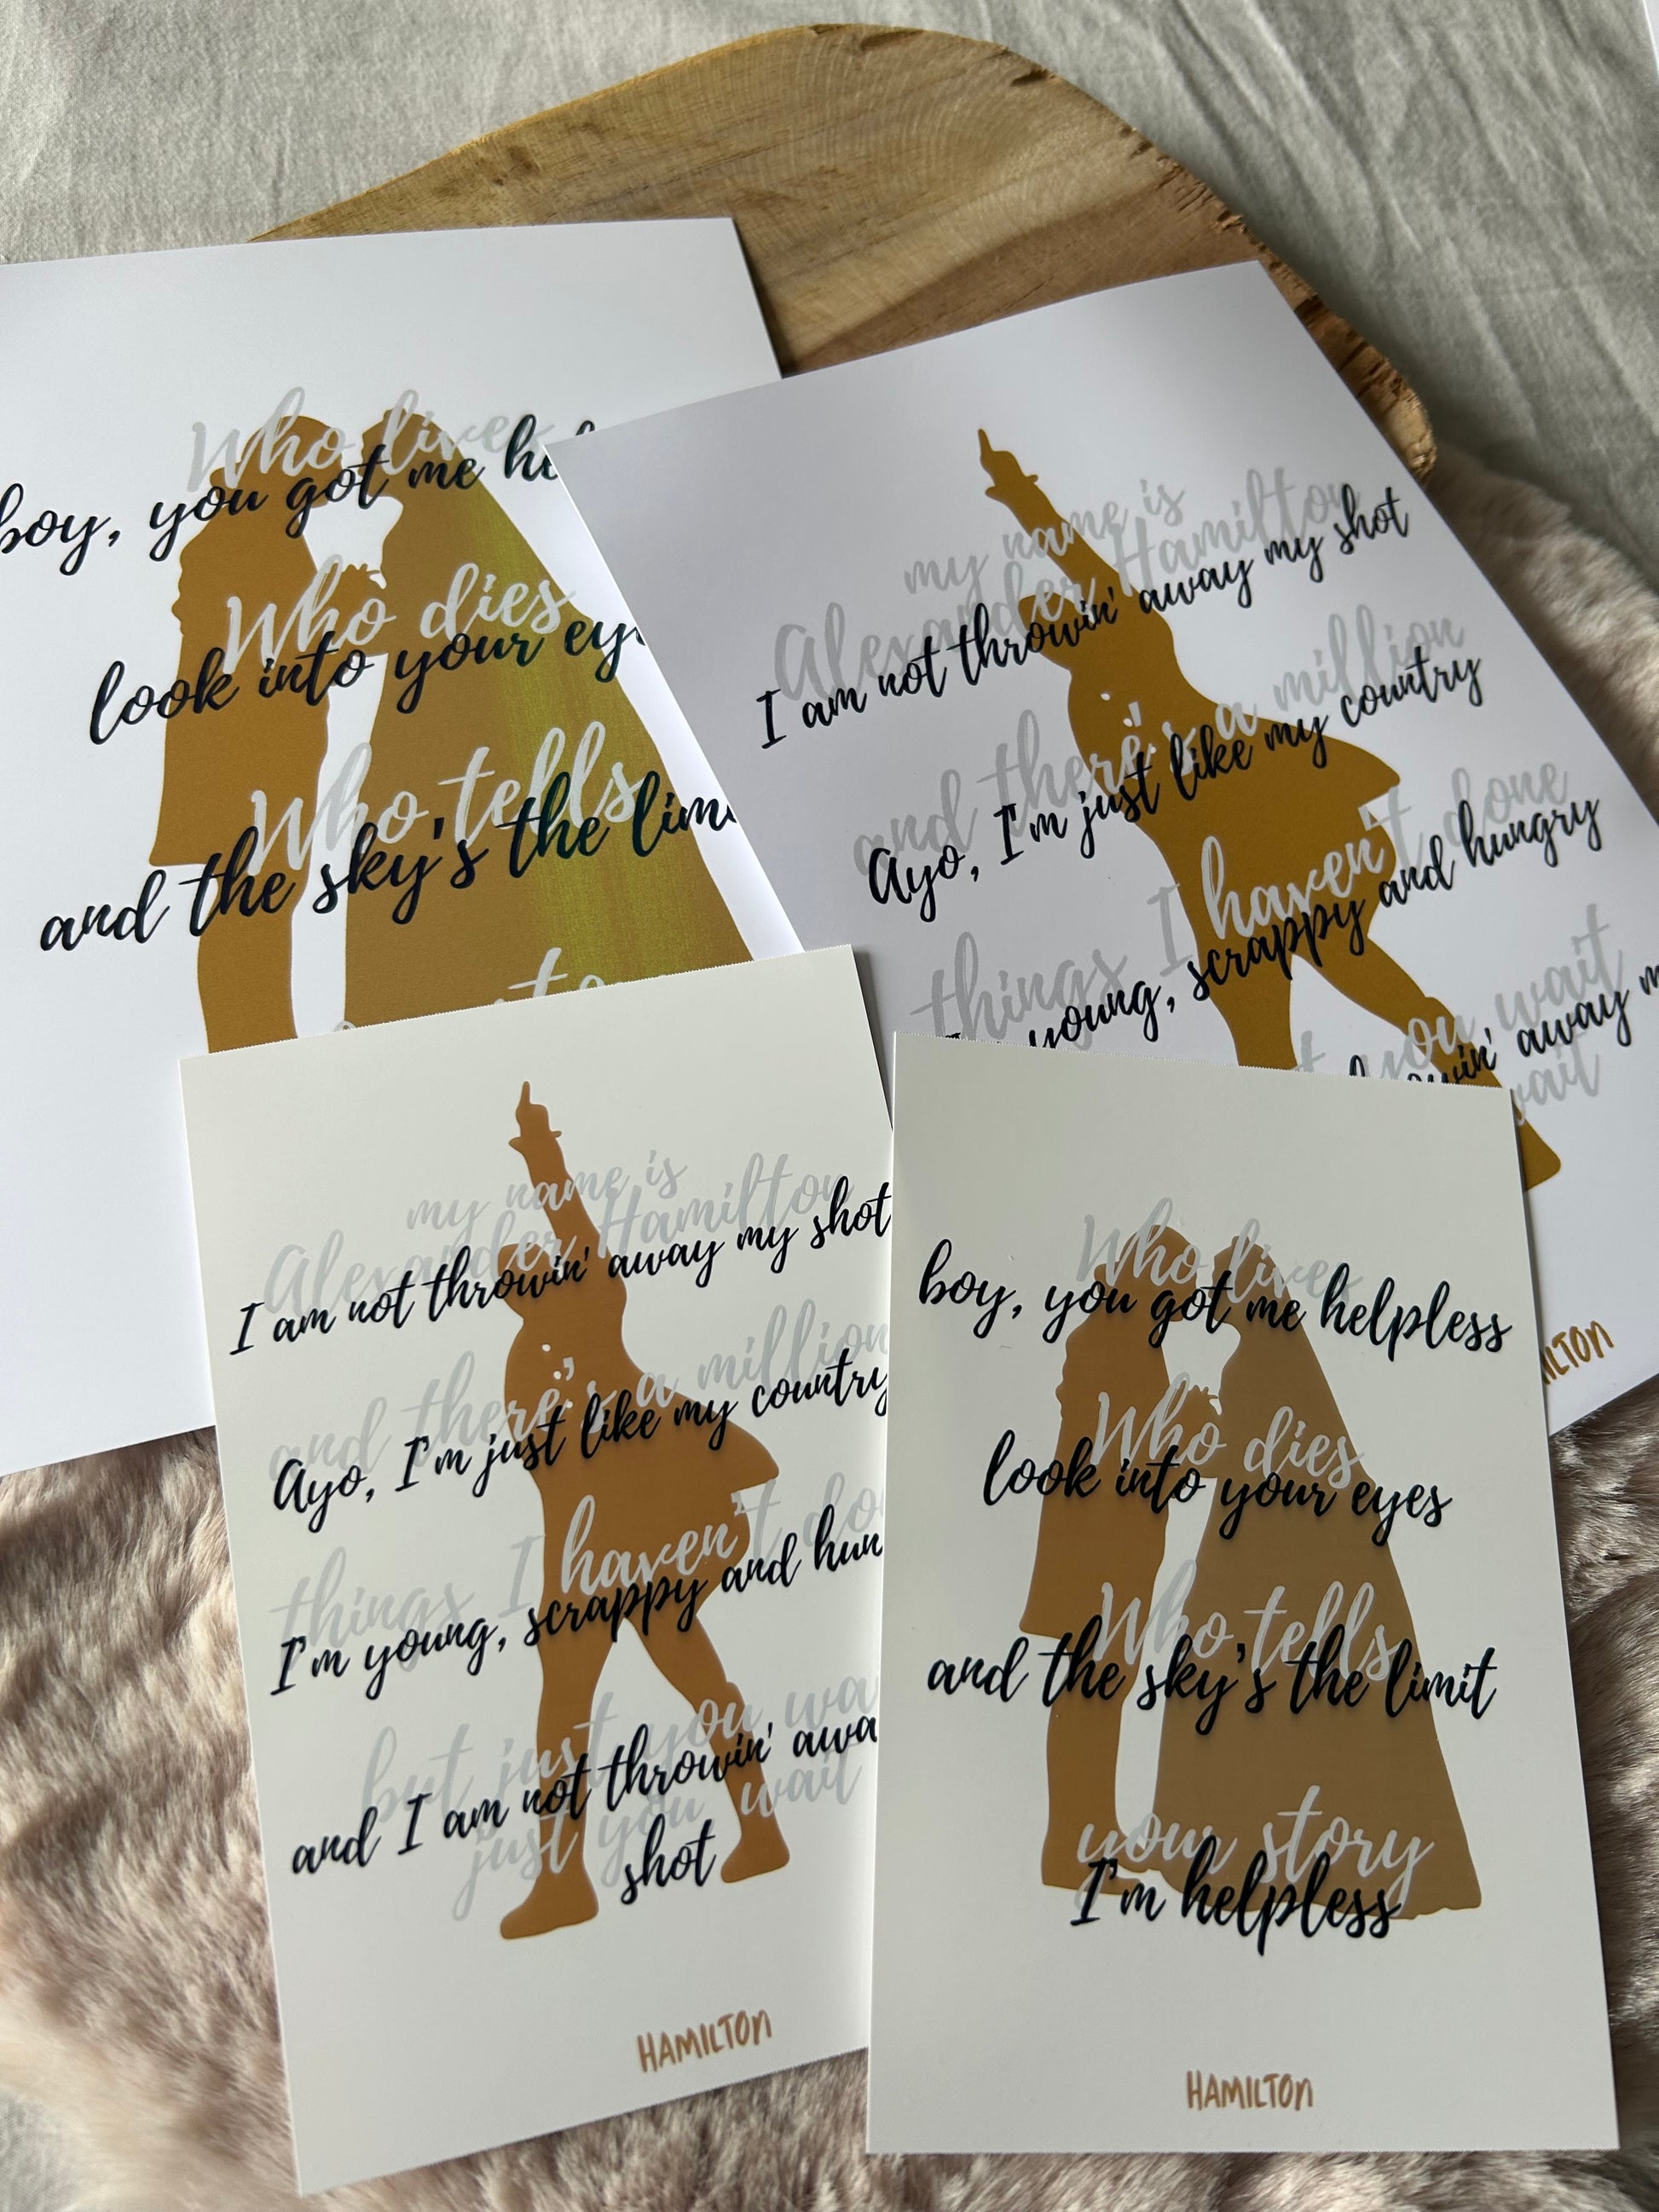 Who lives
boy, you got me
Who dies
look into your
Who tells
and the sky's the
my name is
Alexander Hamilton
I am not throwin' away my shot
and there's a million
Ayo, I'm just like my country
things I haven't done
young, scrappy and hungry
you wait
away
wait
my name is
Alexander Hamilton
I am not throwin' away my shot
and there's a million
Ayo, I'm just like my country
things I haven't
I'm young, scrappy and
but just you
and I am not throwin'
just you wait
shot
HAMILTON
Who lives
boy, you got me helpless
Who dies
look into your eyes
Who tells
and the sky's the limit
your story
I'm helpless
HAMILTON